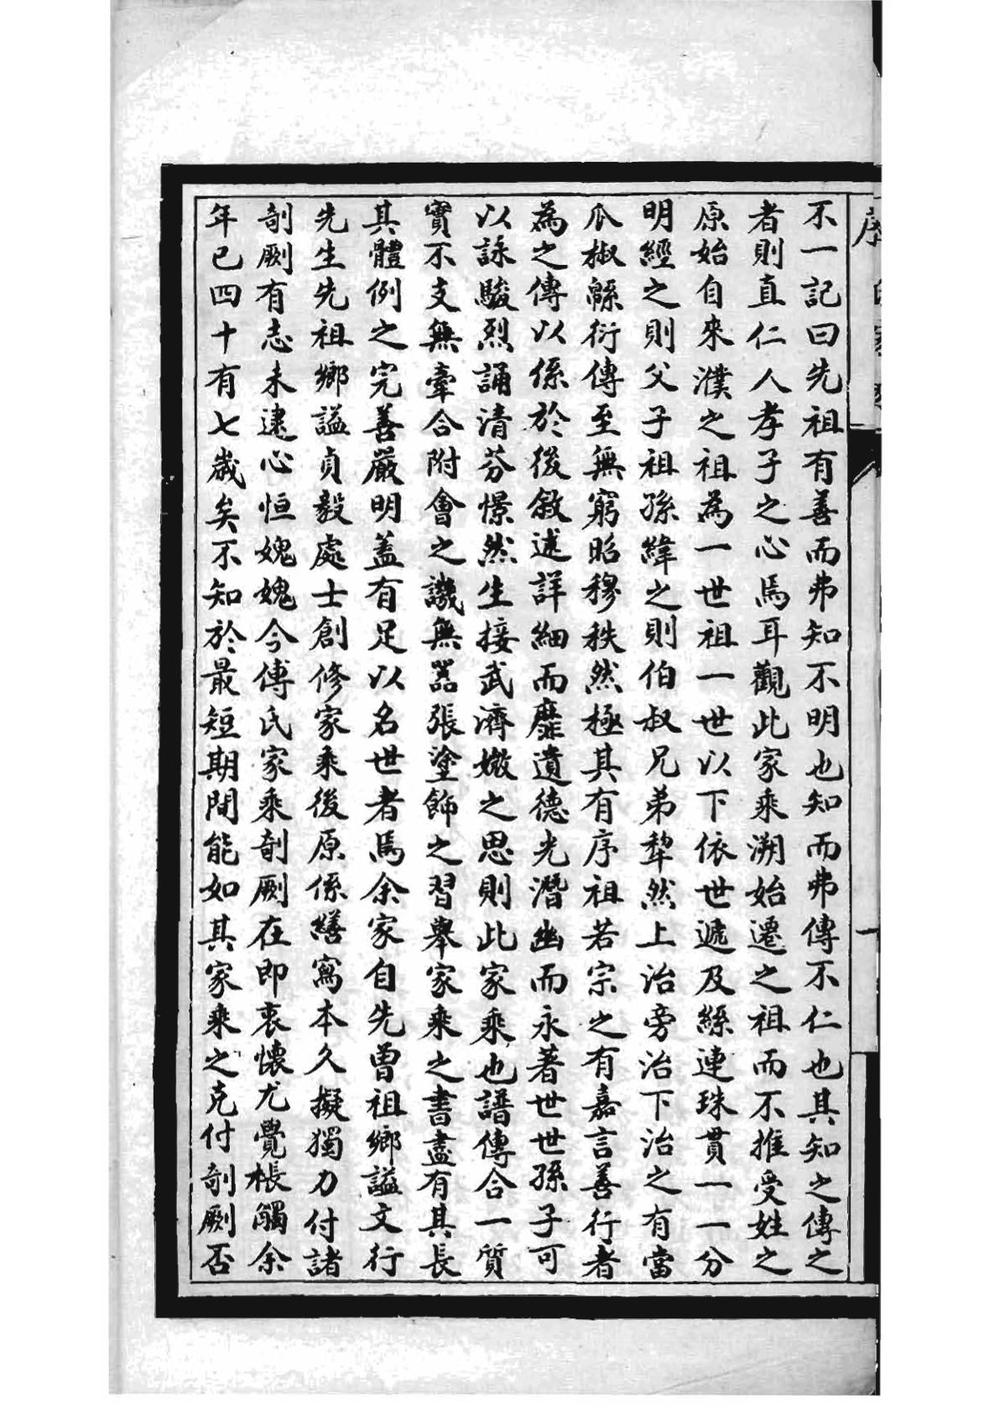 不一記曰先祖有善而弗知不明也知而弗傳不仁也其知之傳之
者則直仁人孝子之心焉耳觀此家乘溯始遷之祖而不推受姓之
原始自來濮之祖為一世祖一世以下依世遞及繇連珠貫一一分
明經之則父子祖孫緯之則伯叔兄弟犂然上治旁治下治之有當
瓜椒緜衍傳至無窮昭穆秩然極其有序祖若宗之有嘉言善行者
為之傳以係於後敘述詳細而靡遺德光潛幽而永著世世孫子可
以詠駿烈誦清芬憬然生接武濟媺之思則此家乘也譜傳合一質
實不支無牽合附會之譏無囂張塗飾之習舉家乘之書盡有其長
其體例之完善嚴明蓋有足以名世者焉余家自先曾祖鄉謚文行
先生先祖鄉謚貞毅處士創修家乘後原係繕寫本久擬獨力付諸
剞劂有志未逮心恒媿媿今傅氏家乘剞劂在即衷懷尤覺棖觸余
年已四十有七歲矣不知於最短期間能如其家乘之克付剞劂否
序